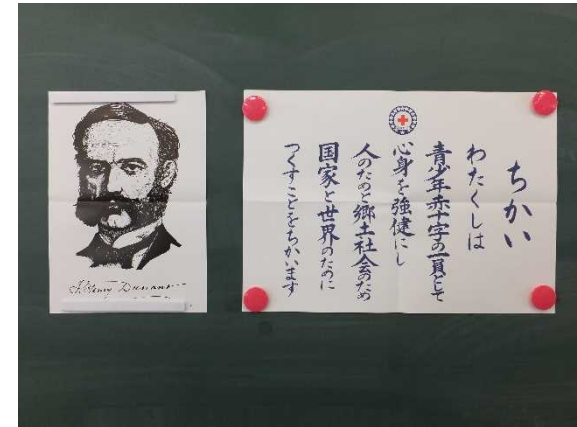 ちかい
わたくしは
青少年赤十字の一員として
心身を強健にし
人のためと郷土社会のため
国家と世界のために
つくすことをちかいます
J. Henry Dunant